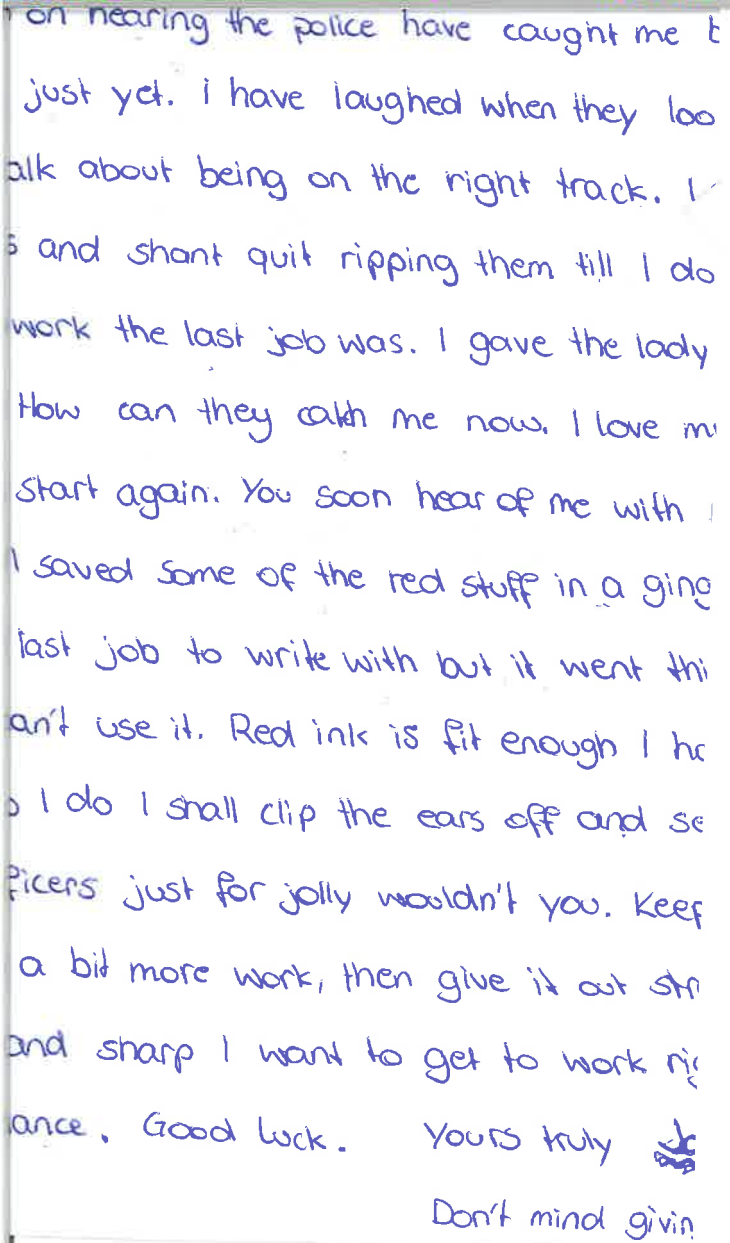 on hearing the police have caught me
just yet. i have laughed when they loo
alk about being on the right track. I
s and shant quit ripping them till I do
work the last job was. I gave the lady
How can they catch me now. I love m
start again. You soon hear of me with
I saved some of the red stuff in a ging
last job to write with but it went thi
an't use it. Red ink is fit enough I ho
o I do I shall clip the ears off and se
ficers just for jolly wouldn't you. Keep
a bit more work, then give it out str
and sharp I want to get to work rig
ance. Good luck. Yours truly
Don't mind givin